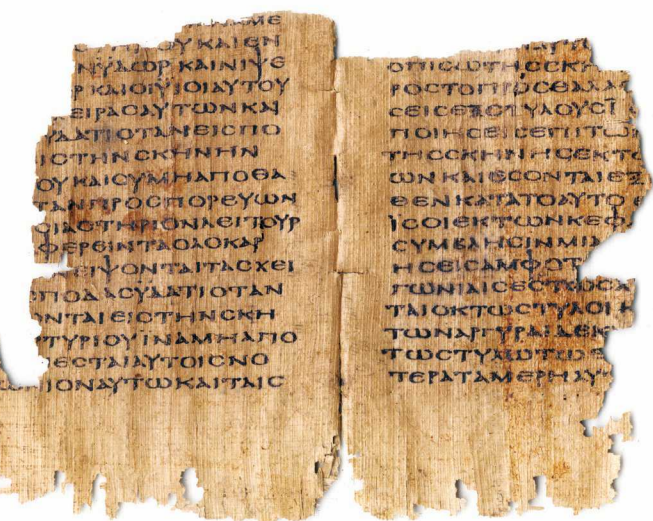 ΜΕ
ΟΥΚΑΙΕΝ
ΥΔΩΡΚΑΙΝΙΨΕ
ΡΚΑΙΟΙΥΙΟΙΑΥΤΟΥ
ΕΙΡΑСΑΥΤΩΝΚΑΙ
ΔΑΤΙΟΤΑΝΕΙСΠΟ
ΙСΤΗΝСΚΗΝΗΝ
ΟΥΚΑΙСΥΜΗΑΠΟΘΑ
ΤΑΝΠΡΟСΠΟΡΕΥΩΝ
СΙΑСΤΗΡΙΟΝΛΕΙΤΟΥΡ
ΦΕΡΕΙΝΤΑΟΛΟΚΑΡ
ΕΙΨΟΝΤΑΙΤΑСΧΕΙ
ΠΟΔΑСΥΔΑΤΙΟΤΑΝ
ΟΝΤΑΙΕΙСΤΗΝСΚΗ
ΤΥΡΙΟΥΙΝΑΜΗΑΠΟ
ΕСΤΑΙΑΥΤΟΙСΝΟ
ΙΟΝΑΥΤΩΚΑΙΤΑΙС
ΟΠΙСΩΤΗССΚ
ΡΟСΤΟΠΡΟСΘΑΛΑ
СΕΙСΕΞСΤΥΛΟΥС
ΠΟΙΗСΕΙСΕΠΙΤΩ
ΤΗССΚΗΝΗСΕΚΤ
ΩΝΚΑΙΕСΟΝΤΑΙΕΞ
ΘΕΝΚΑΤΑΤΟΑΥΤΟ
ΙСΟΙΕΚΤΩΝΚΕΦ
СΥΜΒΛΗСΙΝΜΙΑ
ΗСΕΙСΑΜΦΟΤ
ΓΩΝΙΑΙСΕСΤΩСΑ
ΤΑΙΟΚΤΩСΤΥΛΟΙ
ΤΩΝΑΡΓΥΡΑΙΔΕΚ
ΤΩСΤΥΛΩΤΩ
ΤΕΡΑΤΑΜΕΡΗΑΥ